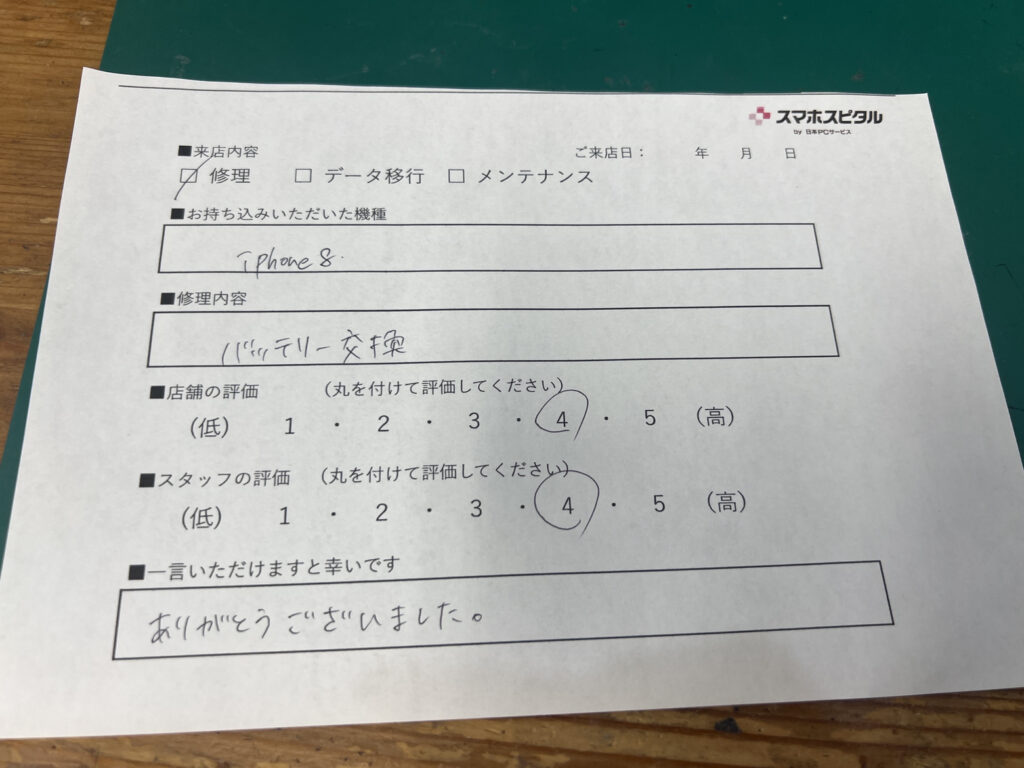 スマホスピタル
by 日本PCサービス
■来店内容 ご来店日： 年 月 日
☑ 修理 □ データ移行 □ メンテナンス
■お持ち込みいただいた機種
iphone8.
■修理内容
バッテリー交換
■店舗の評価 （丸を付けて評価してください）
（低） 1 ・ 2 ・ 3 ・ 4 ・ 5 （高）
■スタッフの評価 （丸を付けて評価してください）
（低） 1 ・ 2 ・ 3 ・ 4 ・ 5 （高）
■一言いただけますと幸いです
ありがとうございました。